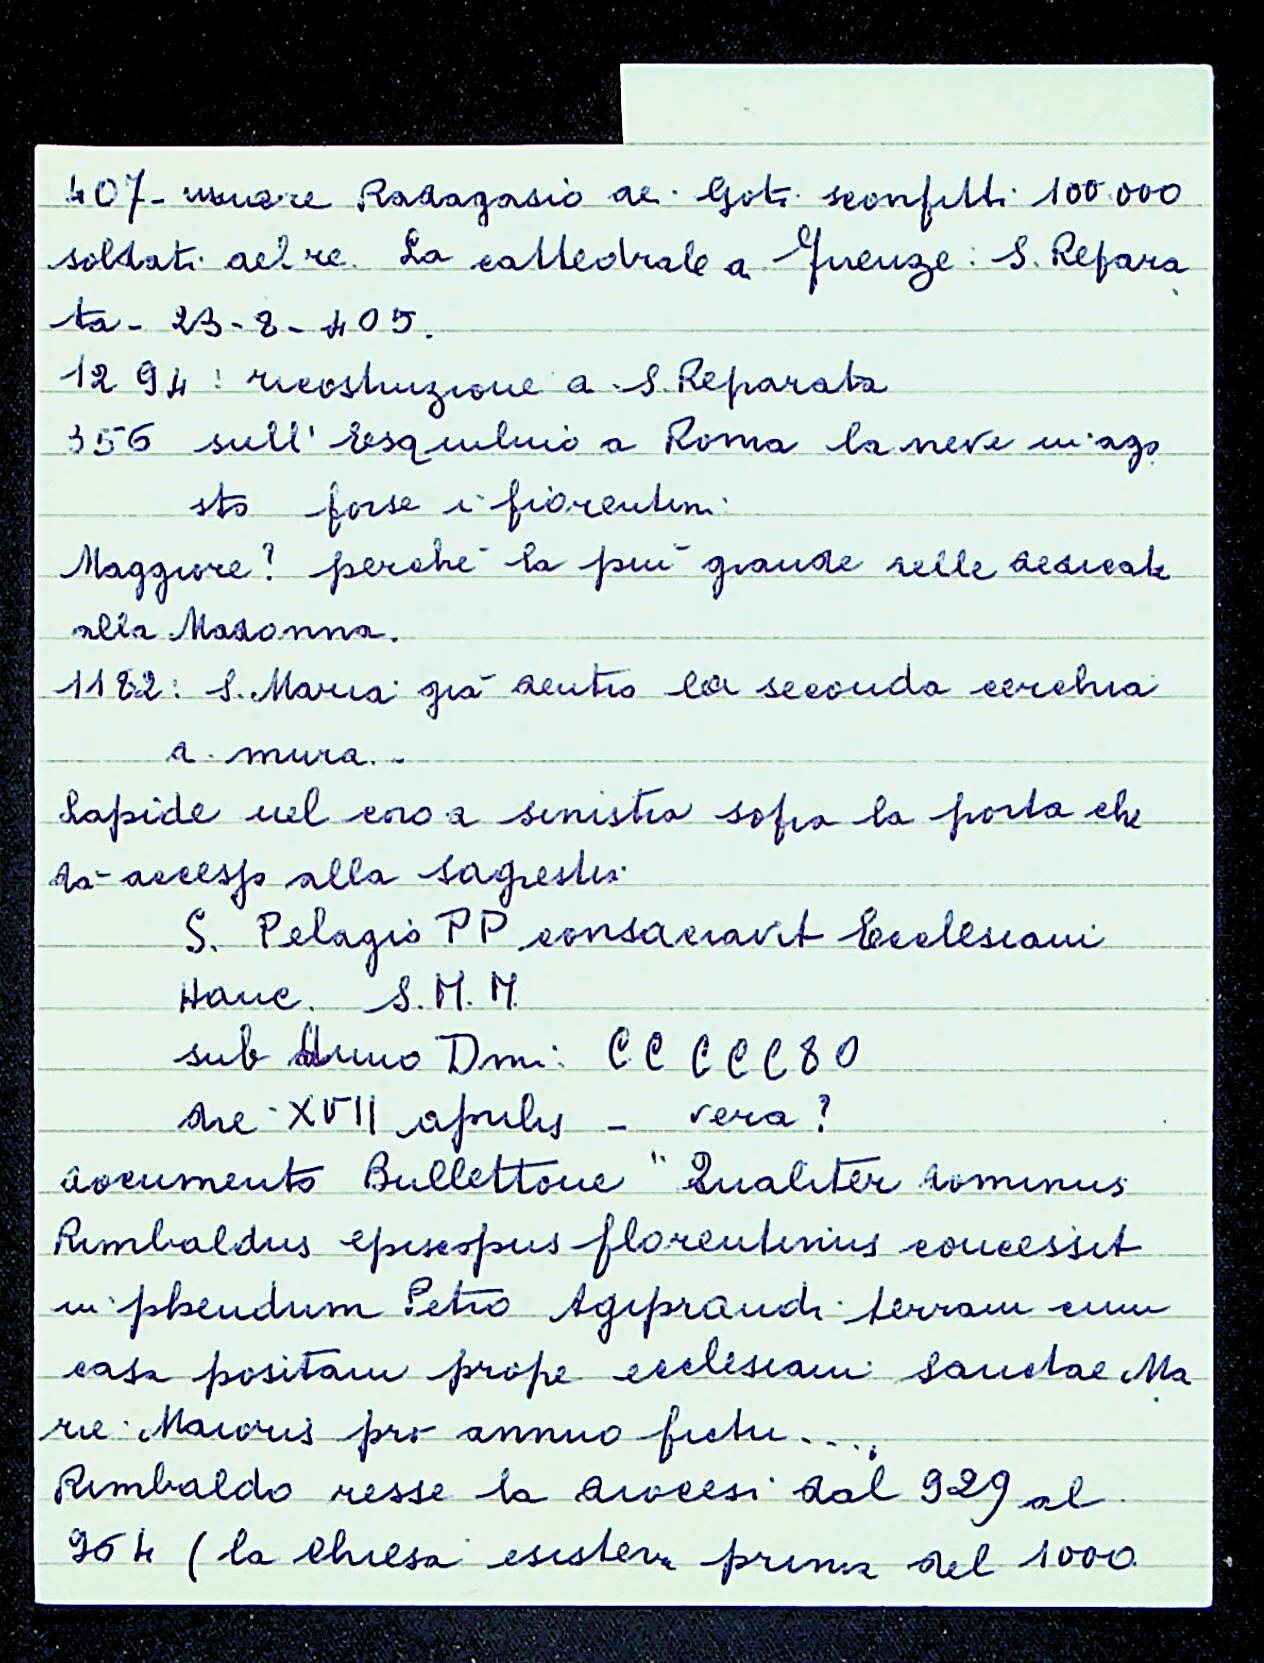 407 - muore Radagasio dei Goti sconfitti 100.000
soldati del re. La cattedrale a Firenze: S. Repara
ta - 23-8-405.
1294: ricostruzione di S. Reparata
356 sull'Esquilino a Roma la neve in ago
sto forse i fiorentini
Maggiore? perchè la più grande delle dedicate
alla Madonna.
1182: S. Maria già dentro la seconda cerchia
di mura..
Lapide nel coro a sinistra sopra la porta che
dà accesso alla sagrestia
S. Pelagio PP consacravit Ecclesiam
Hanc. S.M.M.
sub Anno Dmi: CCCCC80
die XVII aprilis - vera?
documento Bullettone "Qualiter dominus
Rimbaldus episcopus florentinus concessit
in phendum Petro Agiprandi terram cum
casa positam prope ecclesiam Sanctae Ma
rie Maioris pro annuo fictu....
Rimbaldo resse la diocesi dal 929 al
964 (la chiesa esisteva prima del 1000